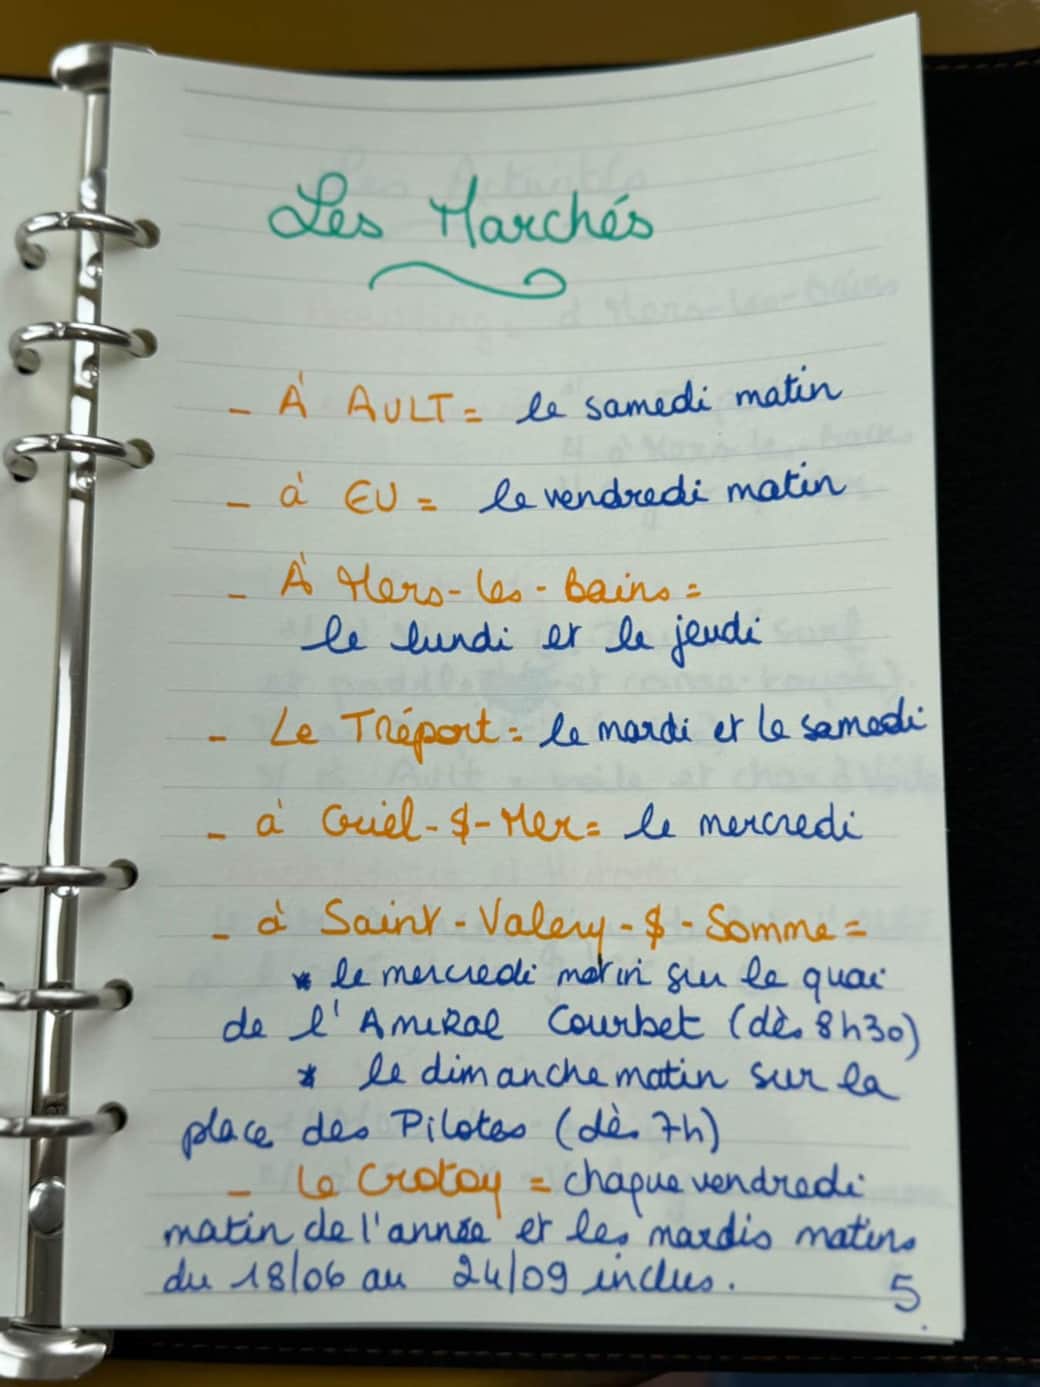 Les Marchés
- À AULT = le samedi matin
- à EU = le vendredi matin
- À Mers-les-bains =
le lundi et le jeudi
- Le Tréport = le mardi et le samedi
- à Criel-$-Mer = le mercredi
- à Saint-Valery-$-Somme =
* le mercredi matin sur le quai
de l'Amiral Courbet (dès 8h30)
* le dimanche matin sur la
place des Pilotes (dès 7h)
- Le Crotoy = chaque vendredi
matin de l'année et les mardis matins
du 18/06 au 24/09 inclus.
5